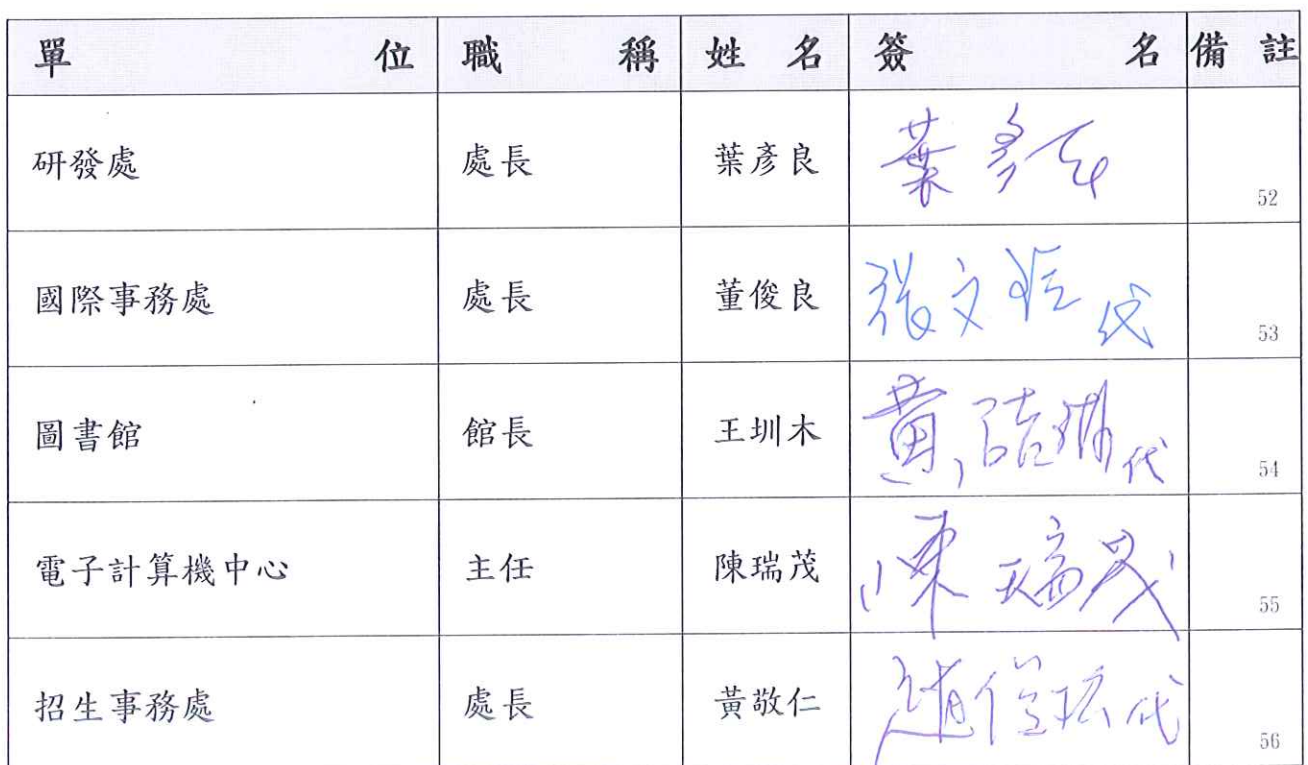 單位 職稱 姓名 簽名 備註
研發處 處長 葉彥良 葉彥良 52
國際事務處 處長 董俊良 張文 代 53
圖書館 館長 王圳木 黃 代 54
電子計算機中心 主任 陳瑞茂 陳瑞茂 55
招生事務處 處長 黃敬仁 趙 代 56